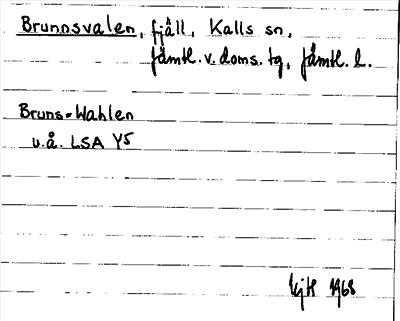 Brunnsvalen, fjäll, Kalls sn,
Jämtl. v. doms. tg, Jämtl. l.
Bruns=Wahlen
u.å. LSA Y5
1968